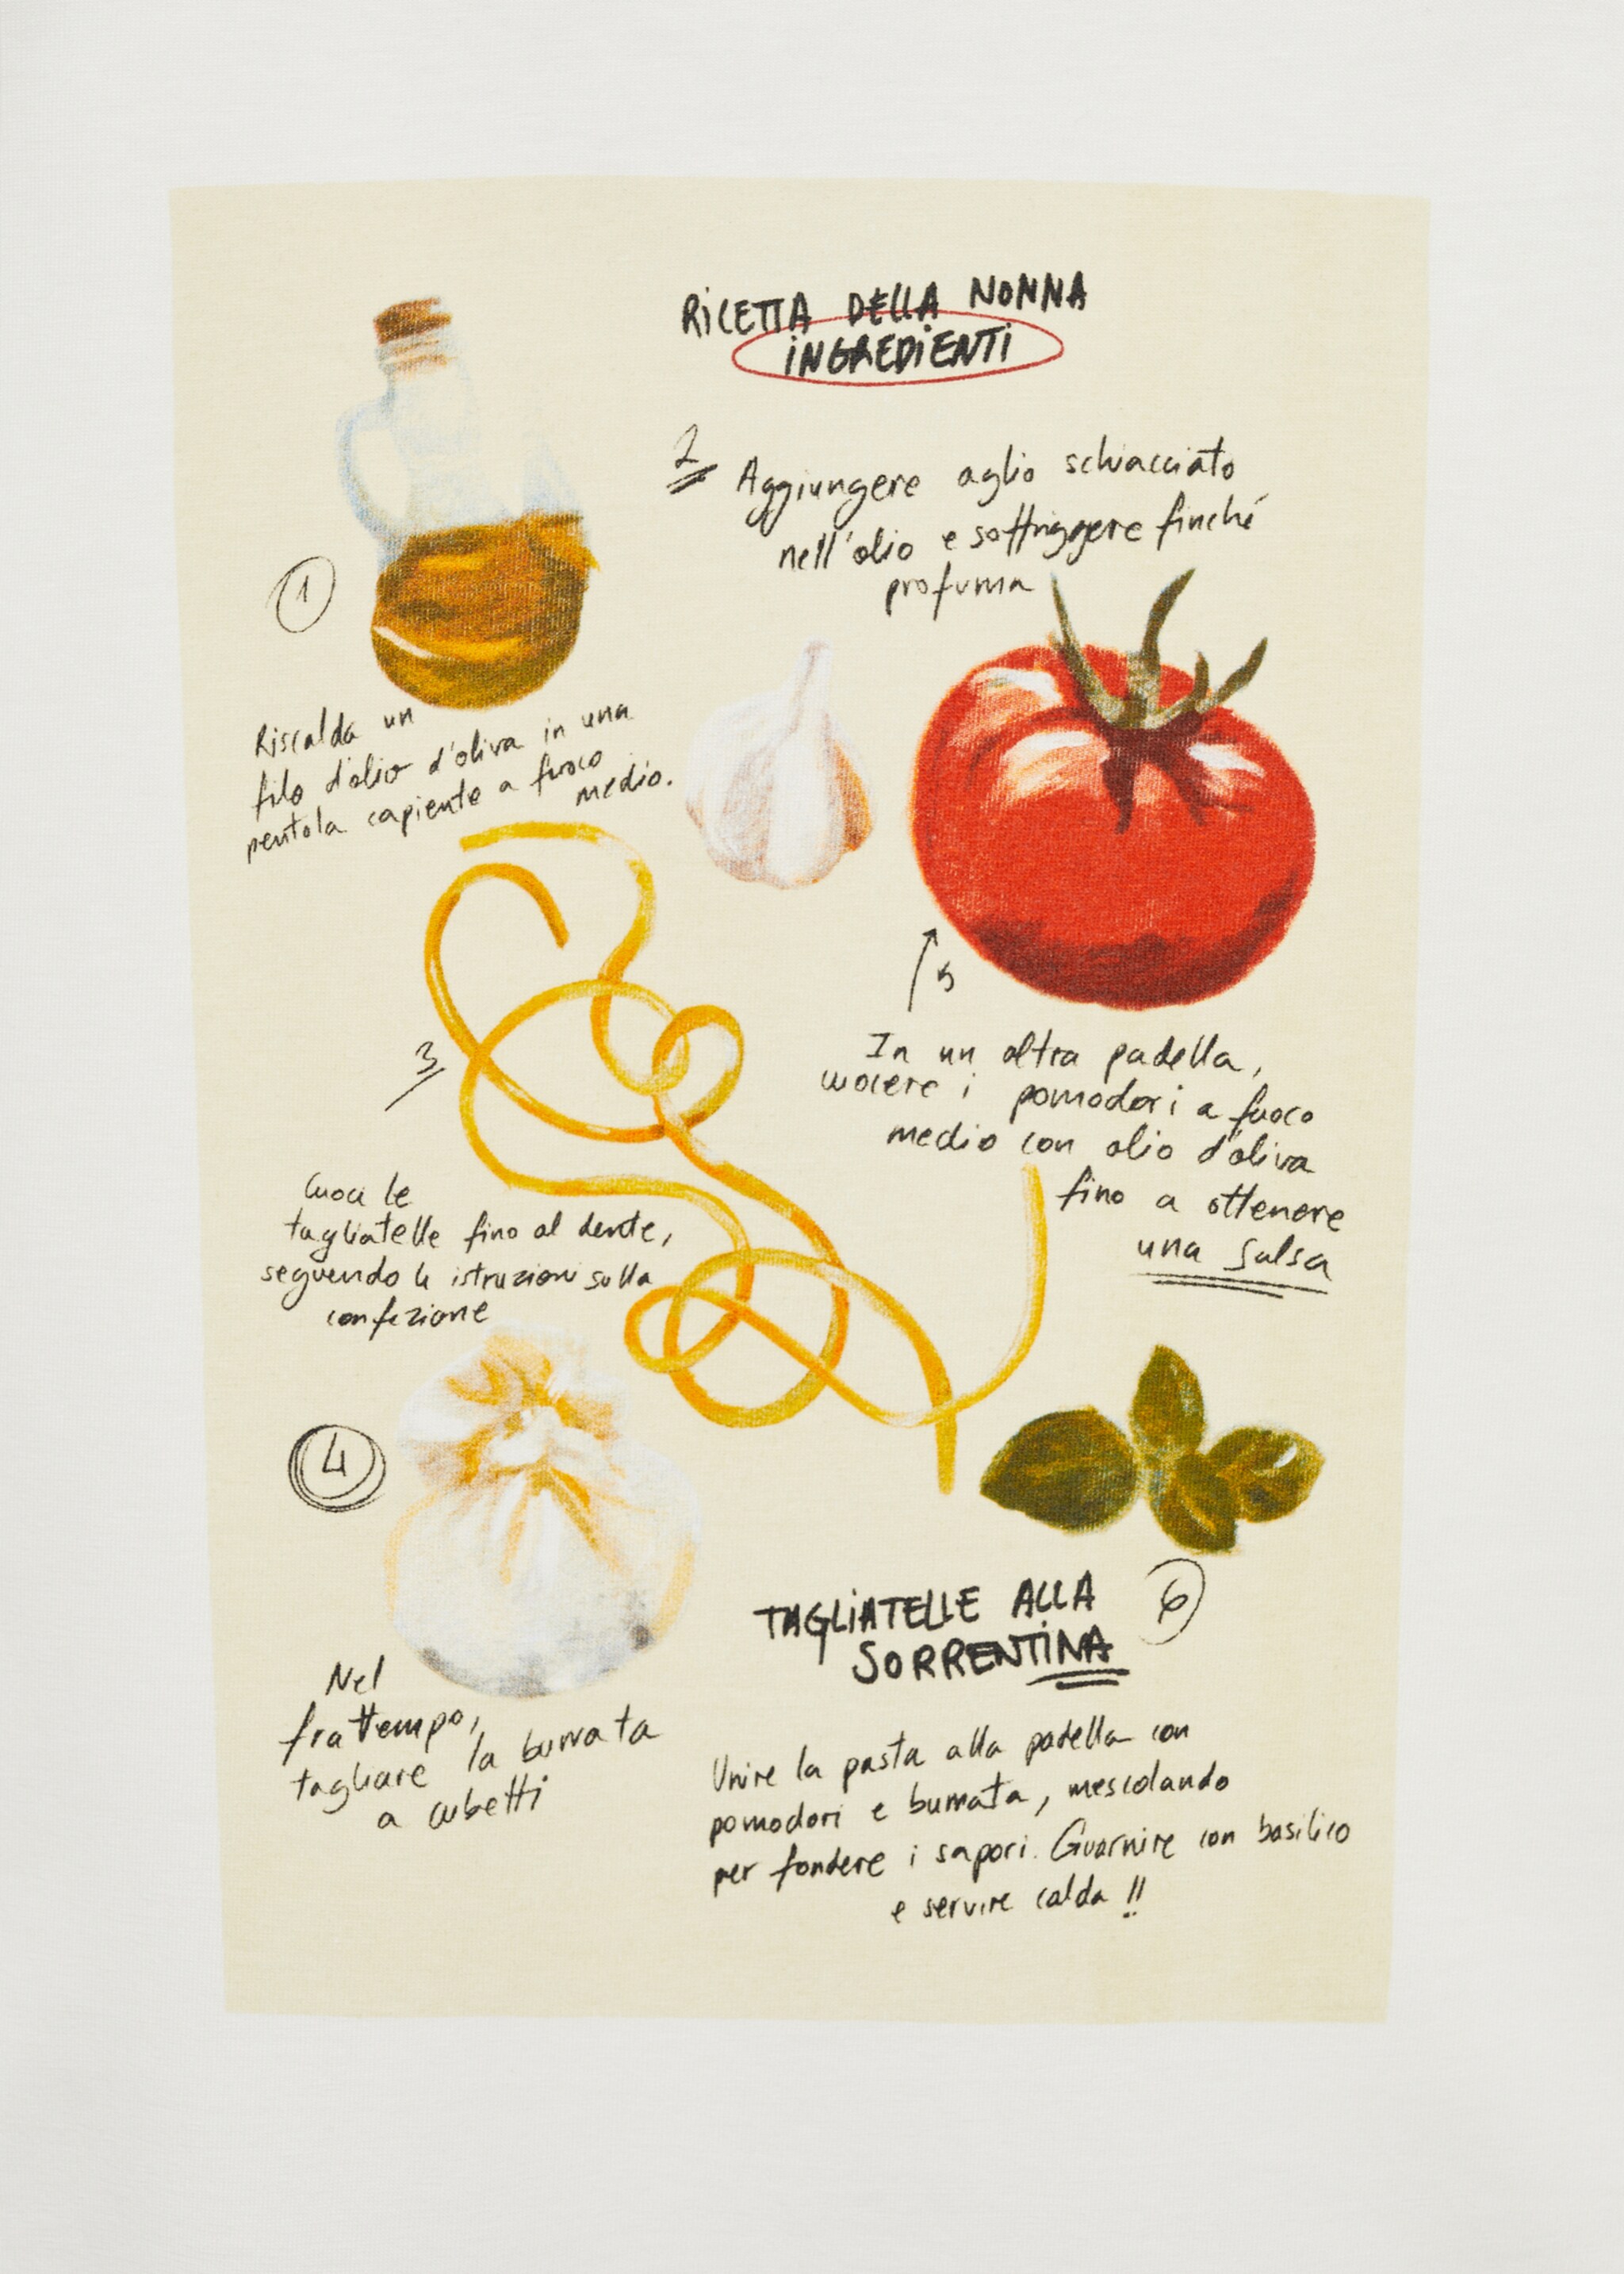 RICETTA DELLA NONNA
INGREDIENTI
1
Riscalda un
filo d'olio d'oliva in una
pentola capiente a fuoco
medio.
2
Aggiungere aglio schiacciato
nell'olio e soffriggere finché
profuma
3
Cuoci le
tagliatelle fino al dente,
seguendo le istruzioni sulla
confezione
4
Nel
frattempo,
tagliare la burrata
a cubetti
5
In un altra padella,
cuocere i pomodori a fuoco
medio con olio d'oliva
fino a ottenere
una salsa
TAGLIATELLE ALLA
SORRENTINA
6
Unire la pasta alla padella con
pomodori e burrata, mescolando
per fondere i sapori. Guarnire con basilico
e servire calda !!